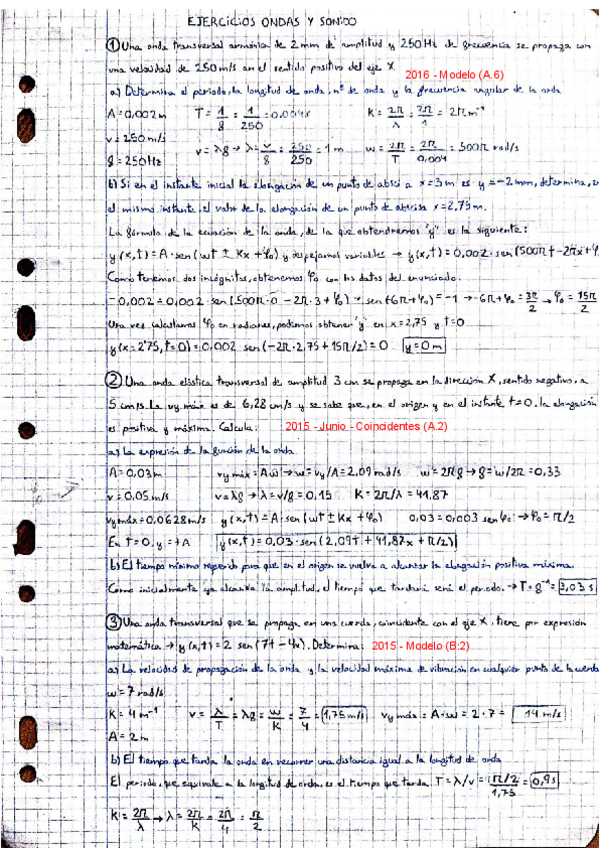 EJERCICIOS ONDAS Y SONIDO
① Una onda transversal armónica de 2 mm de amplitud y 250 Hz de frecuencia se propaga con
una velocidad de 250 m/s en el sentido positivo del eje X
2016 - Modelo (A.6)
a) Determina el periodo, la longitud de onda, nº de onda y la frecuencia angular de la onda
A = 0,002 m T = 1/8 = 1/250 = 0,004 s K = 2π/λ = 2π/1 = 2π m⁻¹
v = 250 m/s
v = λ8 → λ = v/8 = 250/250 = 1 m w = 2π/T = 2π/0,004 = 500π rad/s
8 = 250 Hz
b) Si en el instante inicial la elongación de un punto de abscisa x = 3 m es y = -2 mm, determina, en
el mismo instante, el valor de la elongación de un punto de abscisa x = 2,75 m.
La fórmula de la ecuación de la onda, de la que obtendremos "y" es la siguiente:
y(x,t) = A · sen(wt ± Kx + φ₀) y despejamos variables → y(x,t) = 0,002 · sen(500πt - 2πx + φ
Como tenemos dos incógnitas, obtenemos φ₀ con los datos del enunciado:
-0,002 = 0,002 · sen(500π·0 - 2π·3 + φ₀) → sen(-6π + φ₀) = -1 → -6π + φ₀ = 3π/2 → φ₀ = 15π/2
Una vez calculamos φ₀ en radianes, podemos obtener "y" en x = 2,75 y t = 0
y(x = 2'75, t = 0) = 0,002 sen(-2π·2,75 + 15π/2) = 0 y = 0 m
② Una onda elástica transversal de amplitud 3 cm se propaga en la dirección X, sentido negativo, a
5 cm/s. La vy máx es de 6,28 cm/s y se sabe que, en el origen y en el instante t = 0, la elongación
es positiva y máxima. Calcula: 2015 - Junio - Coincidentes (A.2)
a) La expresión de la función de la onda.
A = 0,03 m vy máx = Aw → w = vy/A = 2,09 rad/s w = 2π8 → 8 = w/2π = 0,33
v = 0,05 m/s v = λ8 → λ = v/8 = 0,15 K = 2π/λ = 41,87
vy máx = 0,0628 m/s y(x,t) = A · sen(wt ± Kx + φ₀) 0,03 = 0,003 sen φ₀ → φ₀ = π/2
En t = 0, y = +A y(x,t) = 0,03 · sen(2,09t + 41,87x + π/2)
b) El tiempo mínimo requerido para que en el origen se vuelva a alcanzar la elongación positiva máxima.
Como inicialmente ya alcanza la amplitud, el tiempo que tardará será el periodo. → T = 8⁻¹ = 3,03 s
③ Una onda transversal que se propaga en una cuerda, coincidente con el eje X, tiene por expresión
matemática → y(x,t) = 2 sen(7t - 4x). Determina: 2015 - Modelo (B:2)
a) La velocidad de propagación de la onda y la velocidad máxima de vibración en cualquier punto de la cuerda
w = 7 rad/s
K = 4 m⁻¹ v = λ/T = λ8 = w/K = 7/4 = 1,75 m/s vy máx = A·w = 2·7 = 14 m/s
A = 2 m
b) El tiempo que tarda la onda en recorrer una distancia igual a la longitud de onda
El periodo, que equivale a la longitud de onda, es el tiempo que tarda. T = λ/v = (π/2)/1,75 = 0,9 s
K = 2π/λ → λ = 2π/K = 2π/4 = π/2